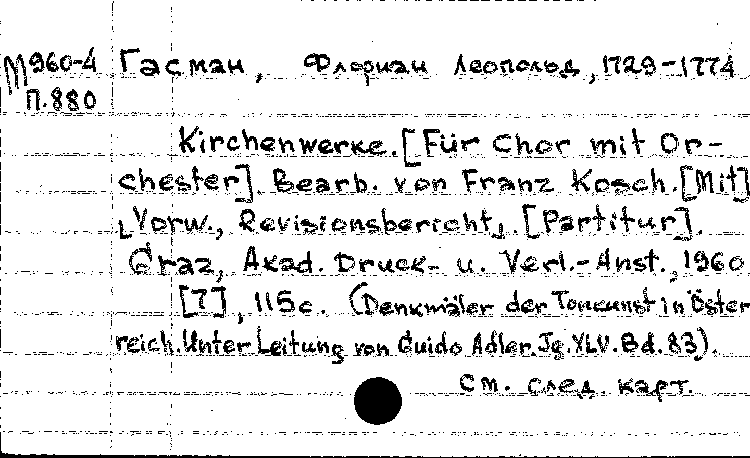 М960-4 Гасман, Флориан Леопольд, 1729-1774
П.880
Kirchenwerke. [Für Chor mit Or-
chester]. Bearb. von Franz Kosch. [Mit]
„Vorw., Revisionsbericht„. [Partitur].
Graz, Akad. Druck- u. Verl.-Anst., 1960
[7], 115c. (Denkmäler der Tonkunst in Öster
reich. Unter Leitung von Guido Adler. Jg. XLV. Bd. 83).
См. след. карт.